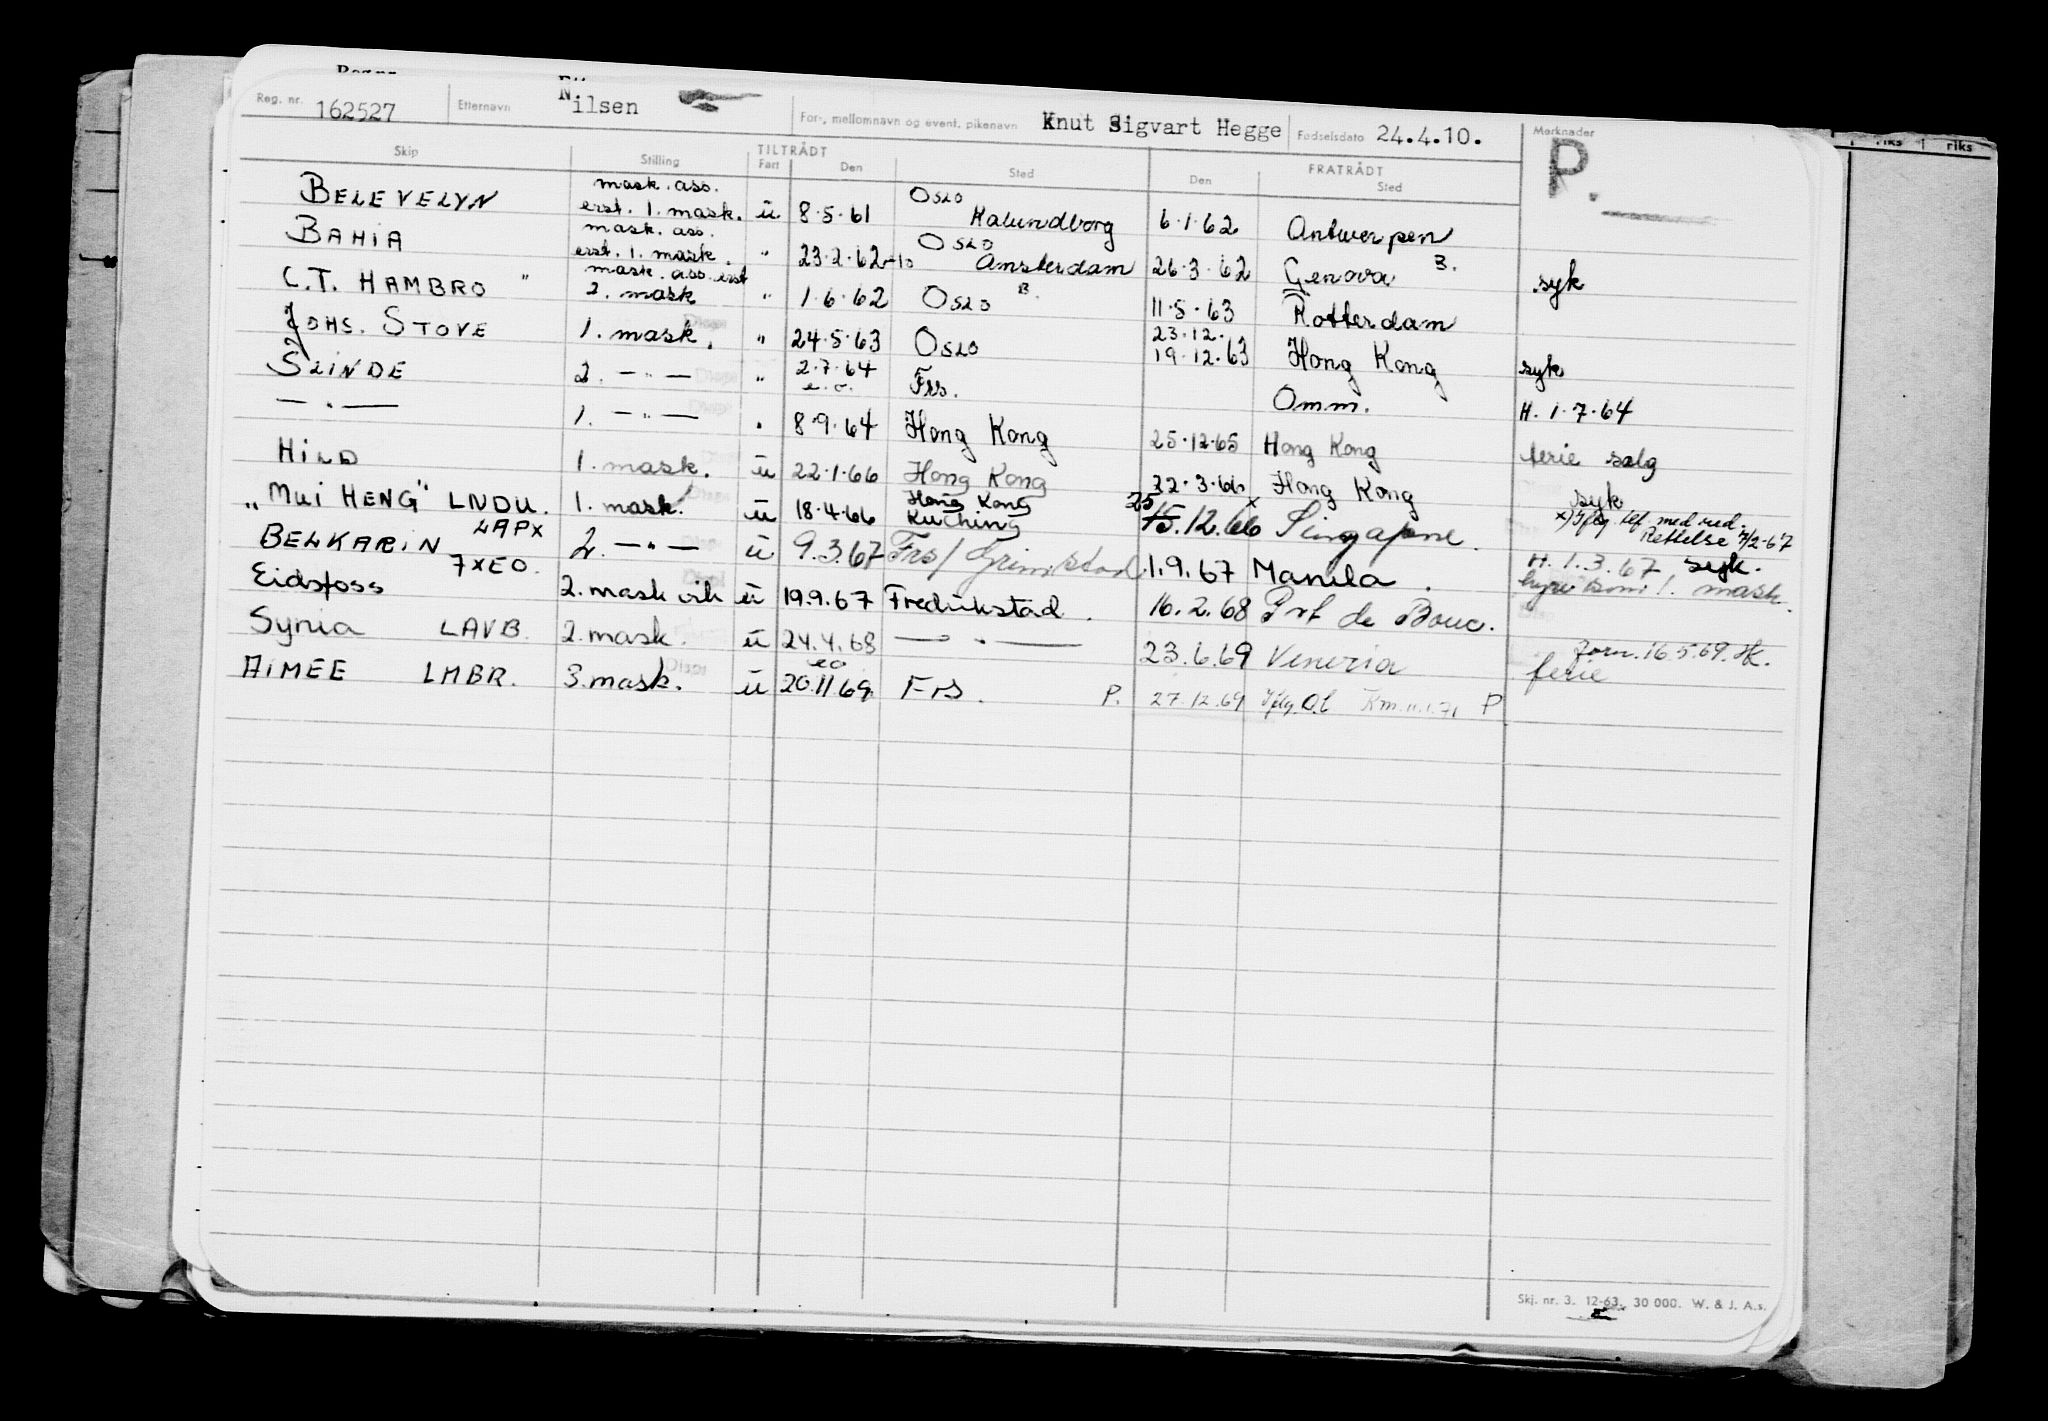 Reg. nr. 162527 Etternavn Nilsen For-, mellomnavn og event. pikenavn Knut Sigvart Hegge Fødselsdato 24.4.10. Merknader
P.
Skip Stilling TILTRÅDT Fart Den Sted FRATRÅDT Den Sted
BELEVELYN mask. ass. erst. 1. mask. ü 8.5.61 OSLO Kalundborg 6.1.62 Antwerpen
BAHIA mask. ass. erst. 1. mask. " 23.2.62 OSLO Amsterdam 26.3.62 Genova B. syk
C.T. HAMBRO " mask. ass. erst 2. mask " 1.6.62 OSLO B. 11.5.63 Rotterdam
JOHS. STOVE 1. mask. " 24.5.63 OSLO 23.12. 19.12.63 Hong Kong syk
SLINDE 2. — " — " 2.7.64 e.o. Frs. Omm. H. 1.7.64
— " — 1. — " — " 8.9.64 Hong Kong 25.12.65 Hong Kong ferie salg
HILD 1. mask. ü 22.1.66 Hong Kong 22.3.66 Hong Kong syk
"MUI HENG" LNDU. 1. mask. ü 18.4.66 Hong Kong Kuching 25 15.12.66 x Singapore. x) Iflg tlf. med red. Rettelse 7/2-67
BELKARIN LAPX 7XEO. 2. — " — ü 9.3.67 Frs/ Grimstad 1.9.67 Manila. H. 1.3.67 syk. hyre som 1. mask.
Eidsfoss 2. mask vik ü 19.9.67 Fredrikstad. 16.2.68 Port de Bouc.
Syria LAVB. 2. mask. ü 24.4.68 — " — 23.6.69 Venezia forn. 16.5.69. ferie
AIMEE LMBR. 3. mask. ü 20.11 69. eo Frs. P. 27.12.69 Iflg. O.l Km. 11.1.71 P
Skj. nr. 3. 12-63. 30 000. W. & J. A.s.
riks 1 riks